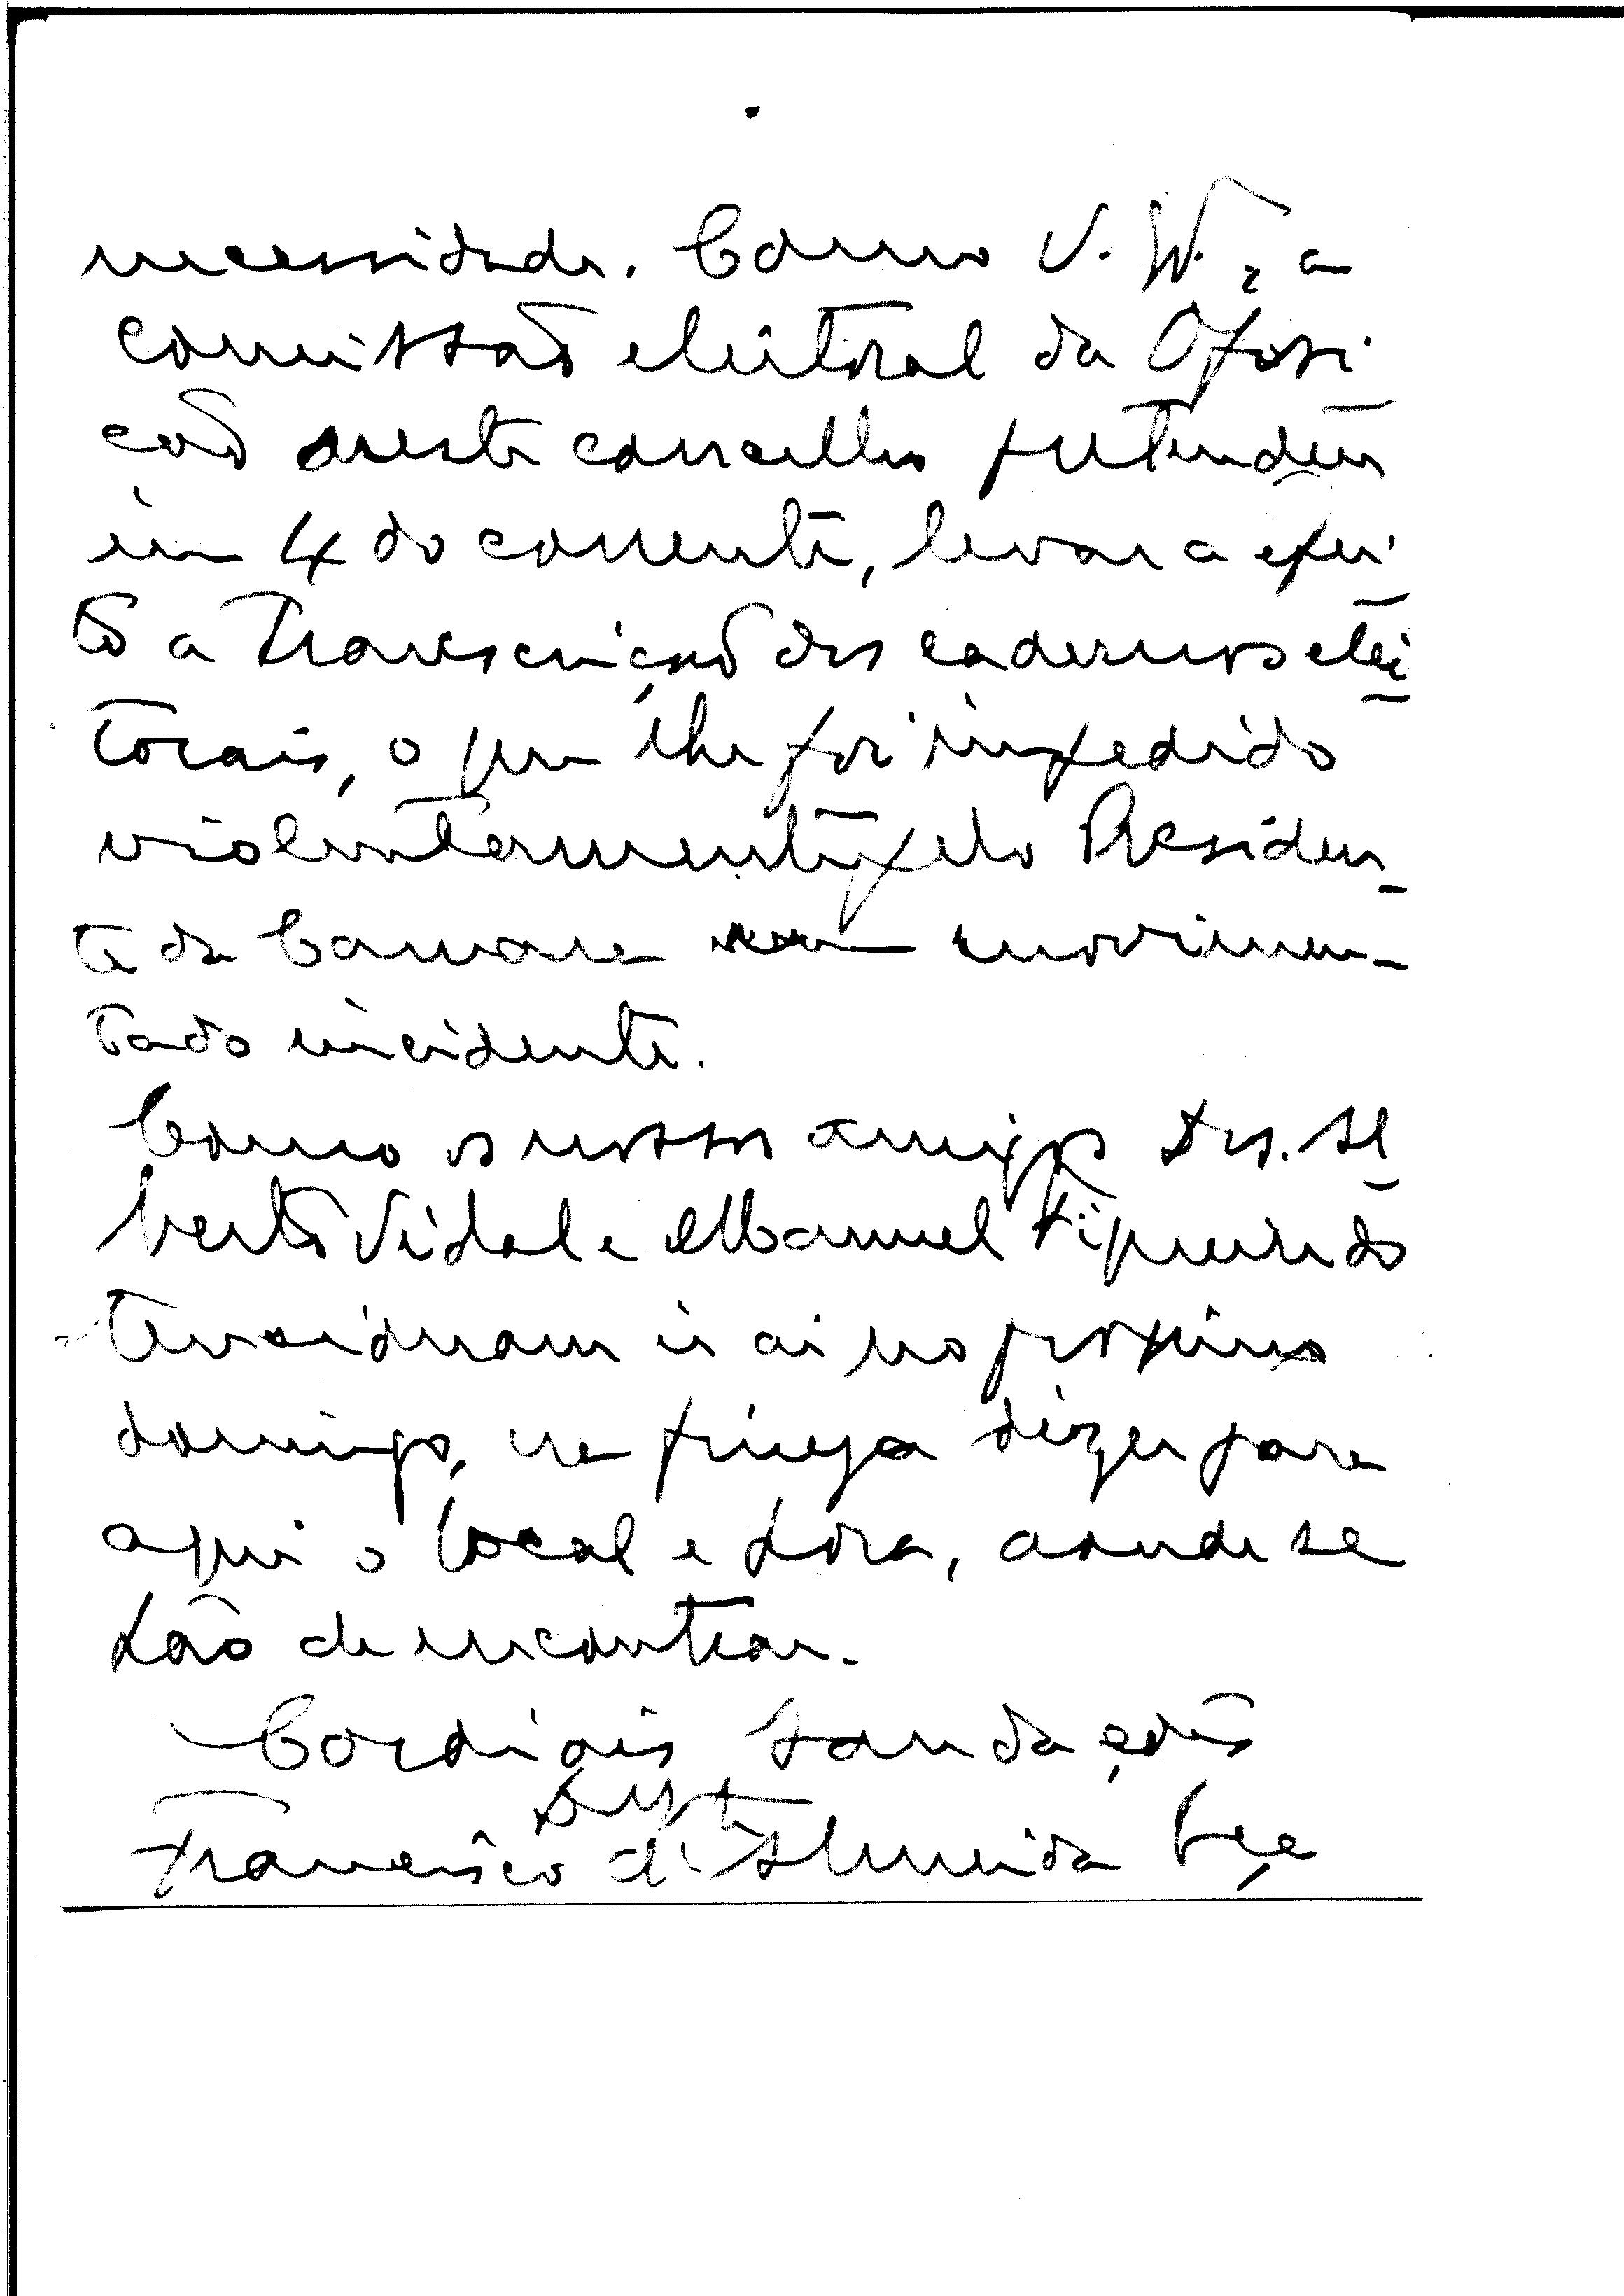 necessidade. Como V. , a
comissão eleitoral da Oposi
ção neste concelho pretendeu
em 4 do corrente, levar a efei
to a transcrição dos cadernos elei
torais, o que lhe foi impedido
violentamente pelo Presiden
te da Camara movimen-
tado incidente.
Como os nossos amigos Drs. Al
berto Vidal e Manuel Figueiredo
tencionam ir ai no proximo
domingo, na fineza dizer para
aqui o local e hora, aonde se
hão de encontrar.
Cordiais saudações
Francisco d'Almeida